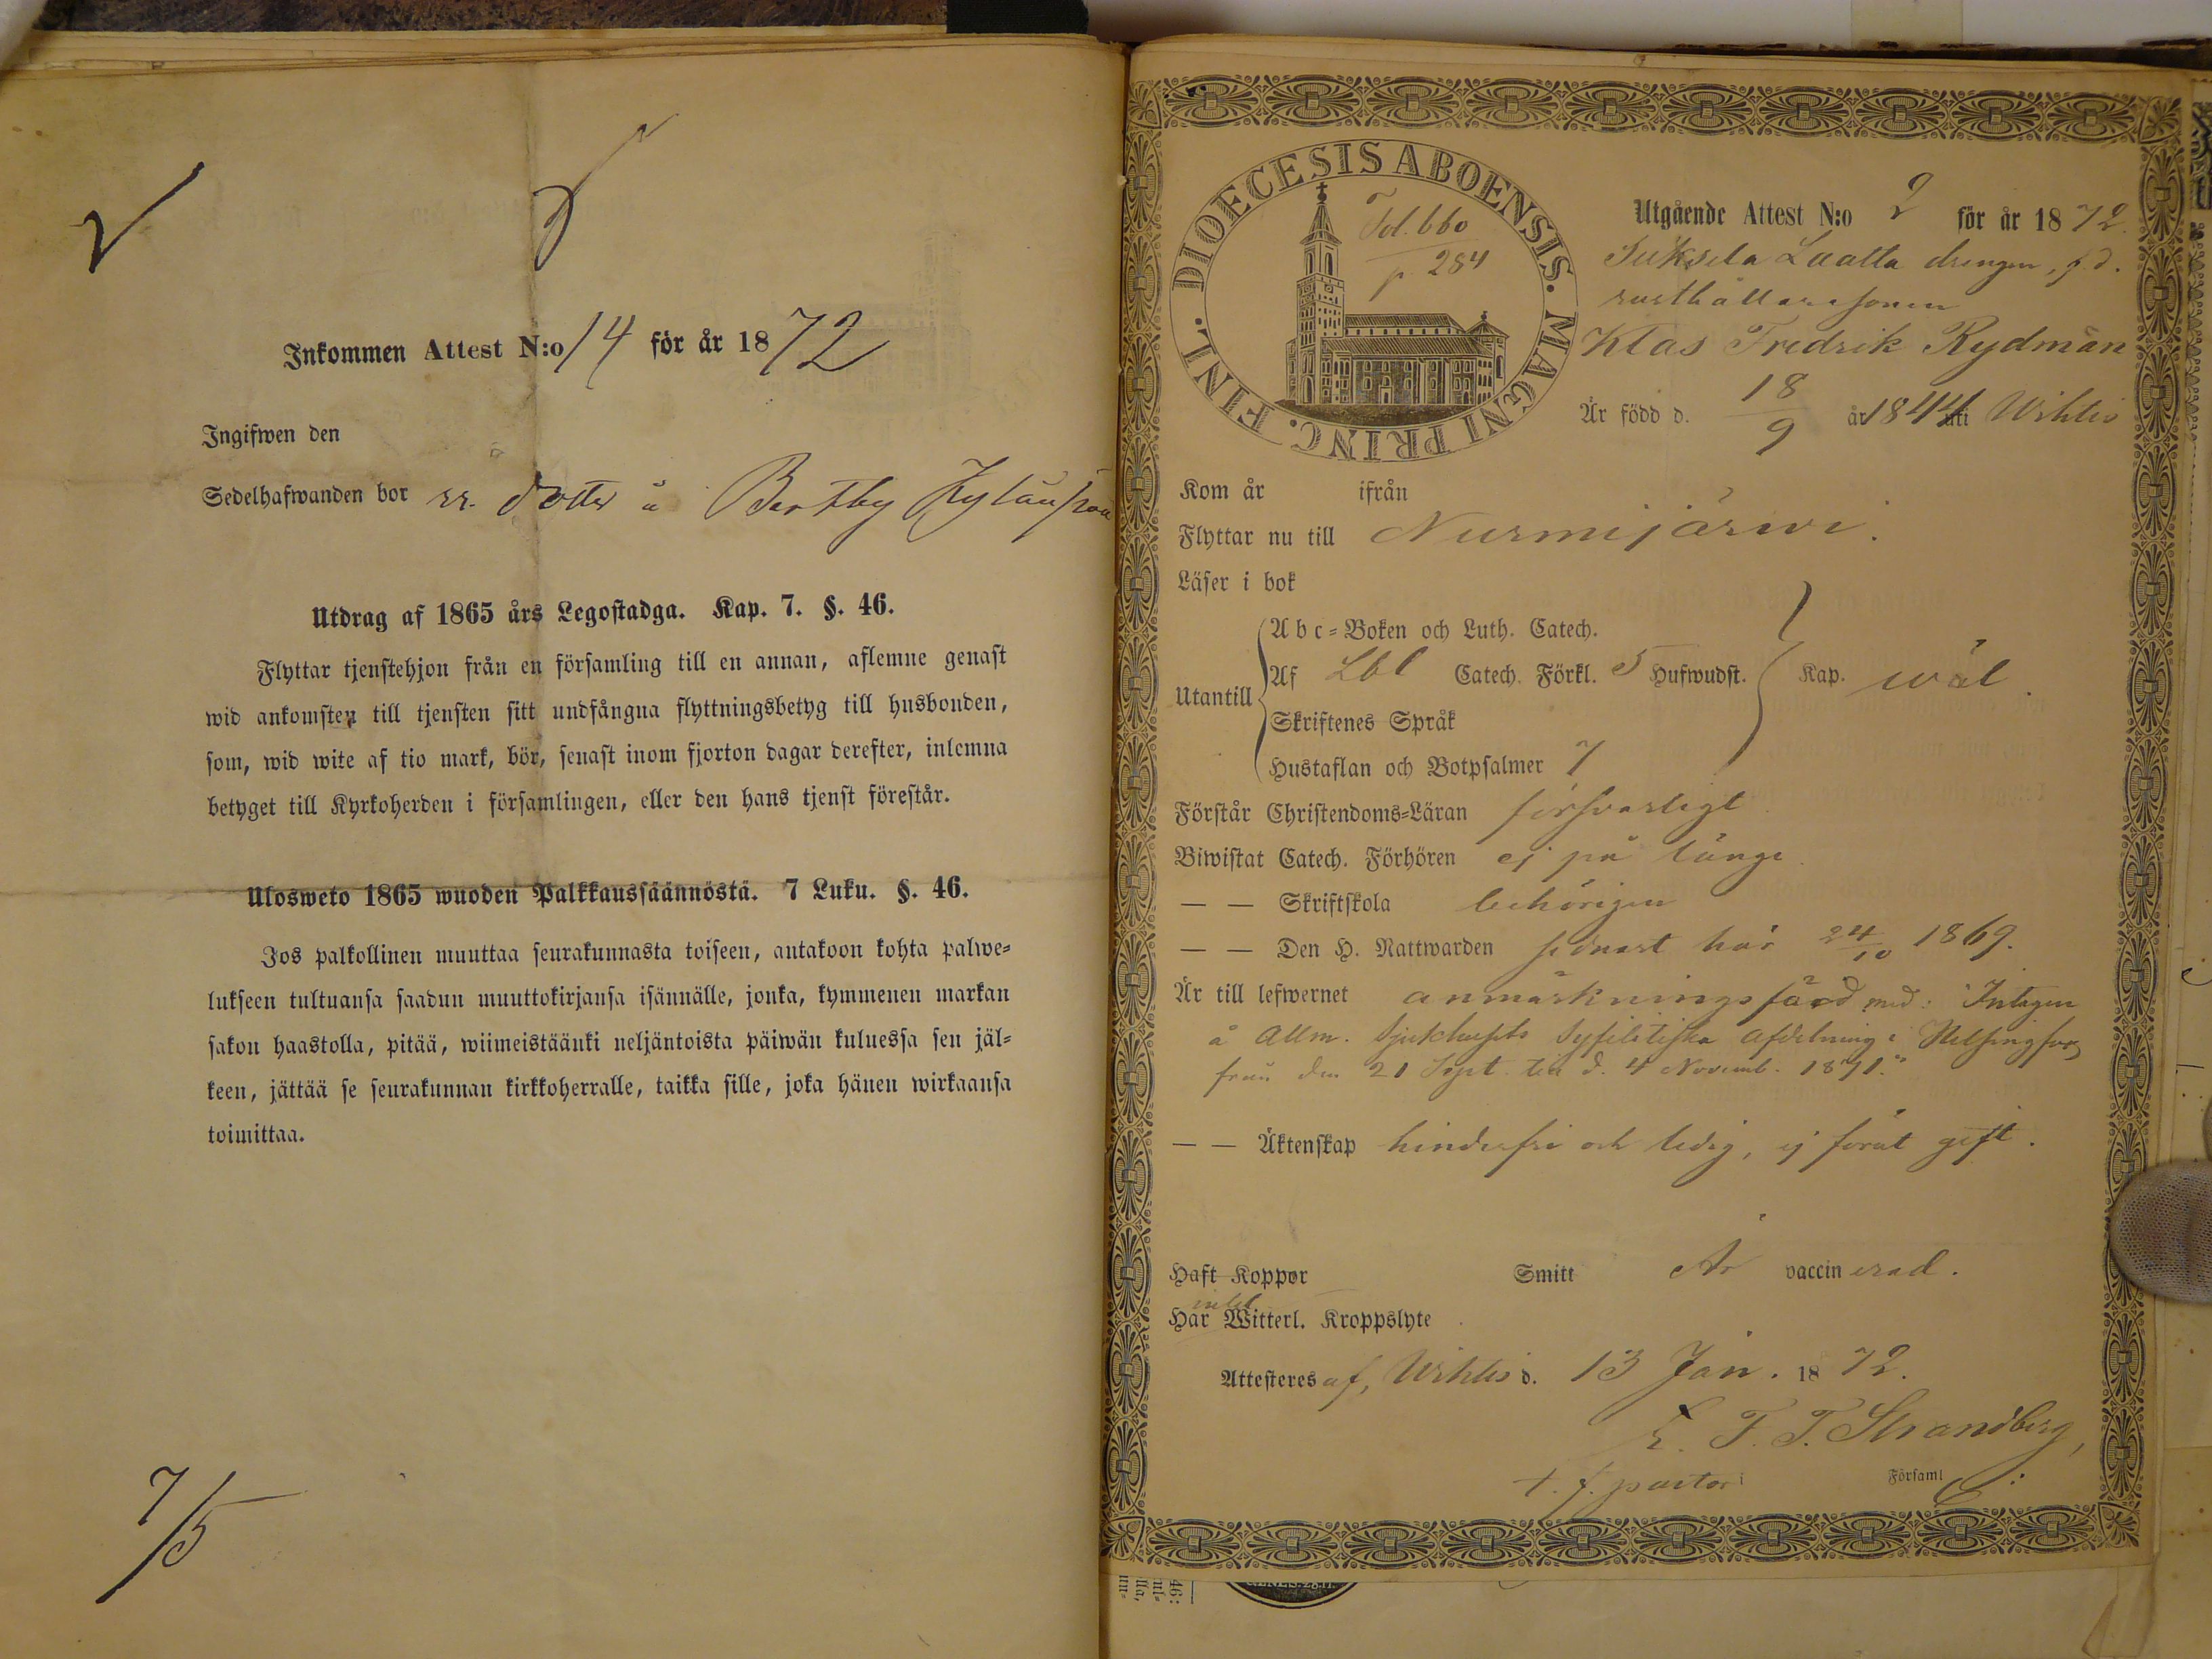 Inkommen Attest N:o 14 för år 1872
Ingifwen den
Sedelhafwanden bor
Utdrag af 1865 års Legostadga. Kap. 7. §. 46.
Flyttar tjenstehjon från en församling till en annan, aflemne genast
wid ankomsten till tjensten sitt undfångna flyttningsbetyg till husbonden,
som, wid wite af tio mark, bör, senast inom fjorton dagar derefter, inlemna
betyget till Kyrkoherden i församlingen, eller den hans tjenst förestår.
Ulosweto 1865 wuoden Palkkaussäännöstä. 7 Luku. §. 46.
Jos palkollinen muuttaa seurakunnasta toiseen, antakoon kohta palwe-
lukseen tultuansa saadun muuttokirjansa isännälle, jonka, kymmenen markan
sakon haastolla, pitää, wiimeistäänki neljäntoista päiwän kuluessa sen jäl-
keen, jättää se seurakunnan kirkkoherralle, taikka sille, joka hänen wirkaansa
toimittaa.
7/5
DIOECESIS ABOENSIS. MAGNI PRINC. FINL.
Fol. 660
p. 284
Utgående Attest N:o 2 för år 1872.
Suksela Laalla drengen, f.d.
rusthållaresonen
Klas Fredrik Rydman
Är född d. 18/9 år 1844 uti Wihtis
Kom år ifrån
Flyttar nu till Nurmijärwi.
Läser i bok
Utantill
Abc-Boken och Luth. Catech.
Af Lbl Catech. Förkl. 5 Hufwudst. Kap. wäl.
Skriftenes Språk
Hustaflan och Botpsalmer 7
Förstår Christendoms-Läran försvarligt
Biwistat Catech. Förhören ej på länge.
— — Skriftskola behörigen
— — Den H. Nattwarden senast här 24/10 1869.
Är till lefwernet anmärkningsfärd med: "Intagen
å Allm. Sjukhusets Syfilitiska afdelning i Helsingfors
från den 21 Sept. till d. 4 Novemb. 1871."
— — Äktenskap hinderfri och ledig, ej förut gift.
Haft Koppor Smitt Är vaccinerad.
intet
Har Witterl. Kroppslyte
Attesteras af, Wihtis d. 13 Jan. 1872.
F. T. Strandberg,
t. f. pastor i Församl